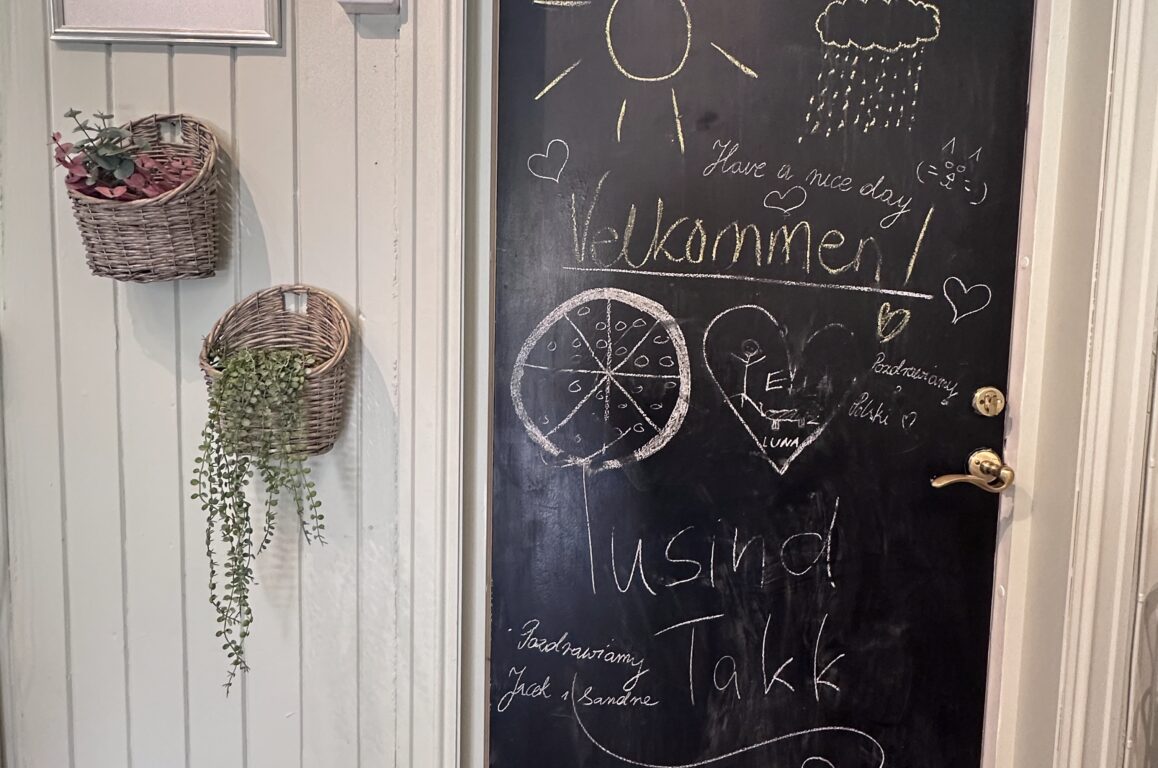 Have a nice day
Velkommen!
E!
Pozdrawiamy
z
Polski
LUNA
Tusind
Takk
Pozdrawiamy
Jacek i Sandne